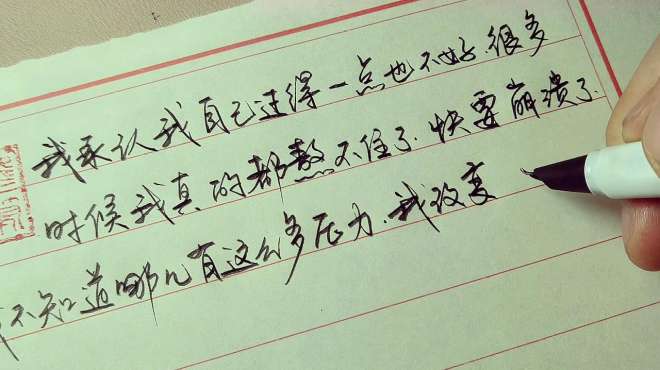 我承认我自己过得一点也不好.很多
时候我真的都熬不住了.快要崩溃了.
我不知道哪儿有这么多压力.我改变